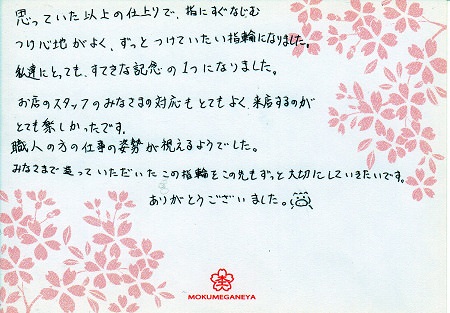 思っていた以上の仕上りで、指にすぐなじむ
つけ心地がよく、ずっとつけていたい指輪になりました。
私達にとっても、すてきな記念の1つになりました。
お店のスタッフのみなさまの対応もとてもよく、来店するのが
とても楽しかったです。
職人の方の仕事の姿勢が視えるようでした。
みなさまで造っていただいたこの指輪をこの先もずっと大切にしていきたいです。
ありがとうございました。
MOKUMEGANEYA